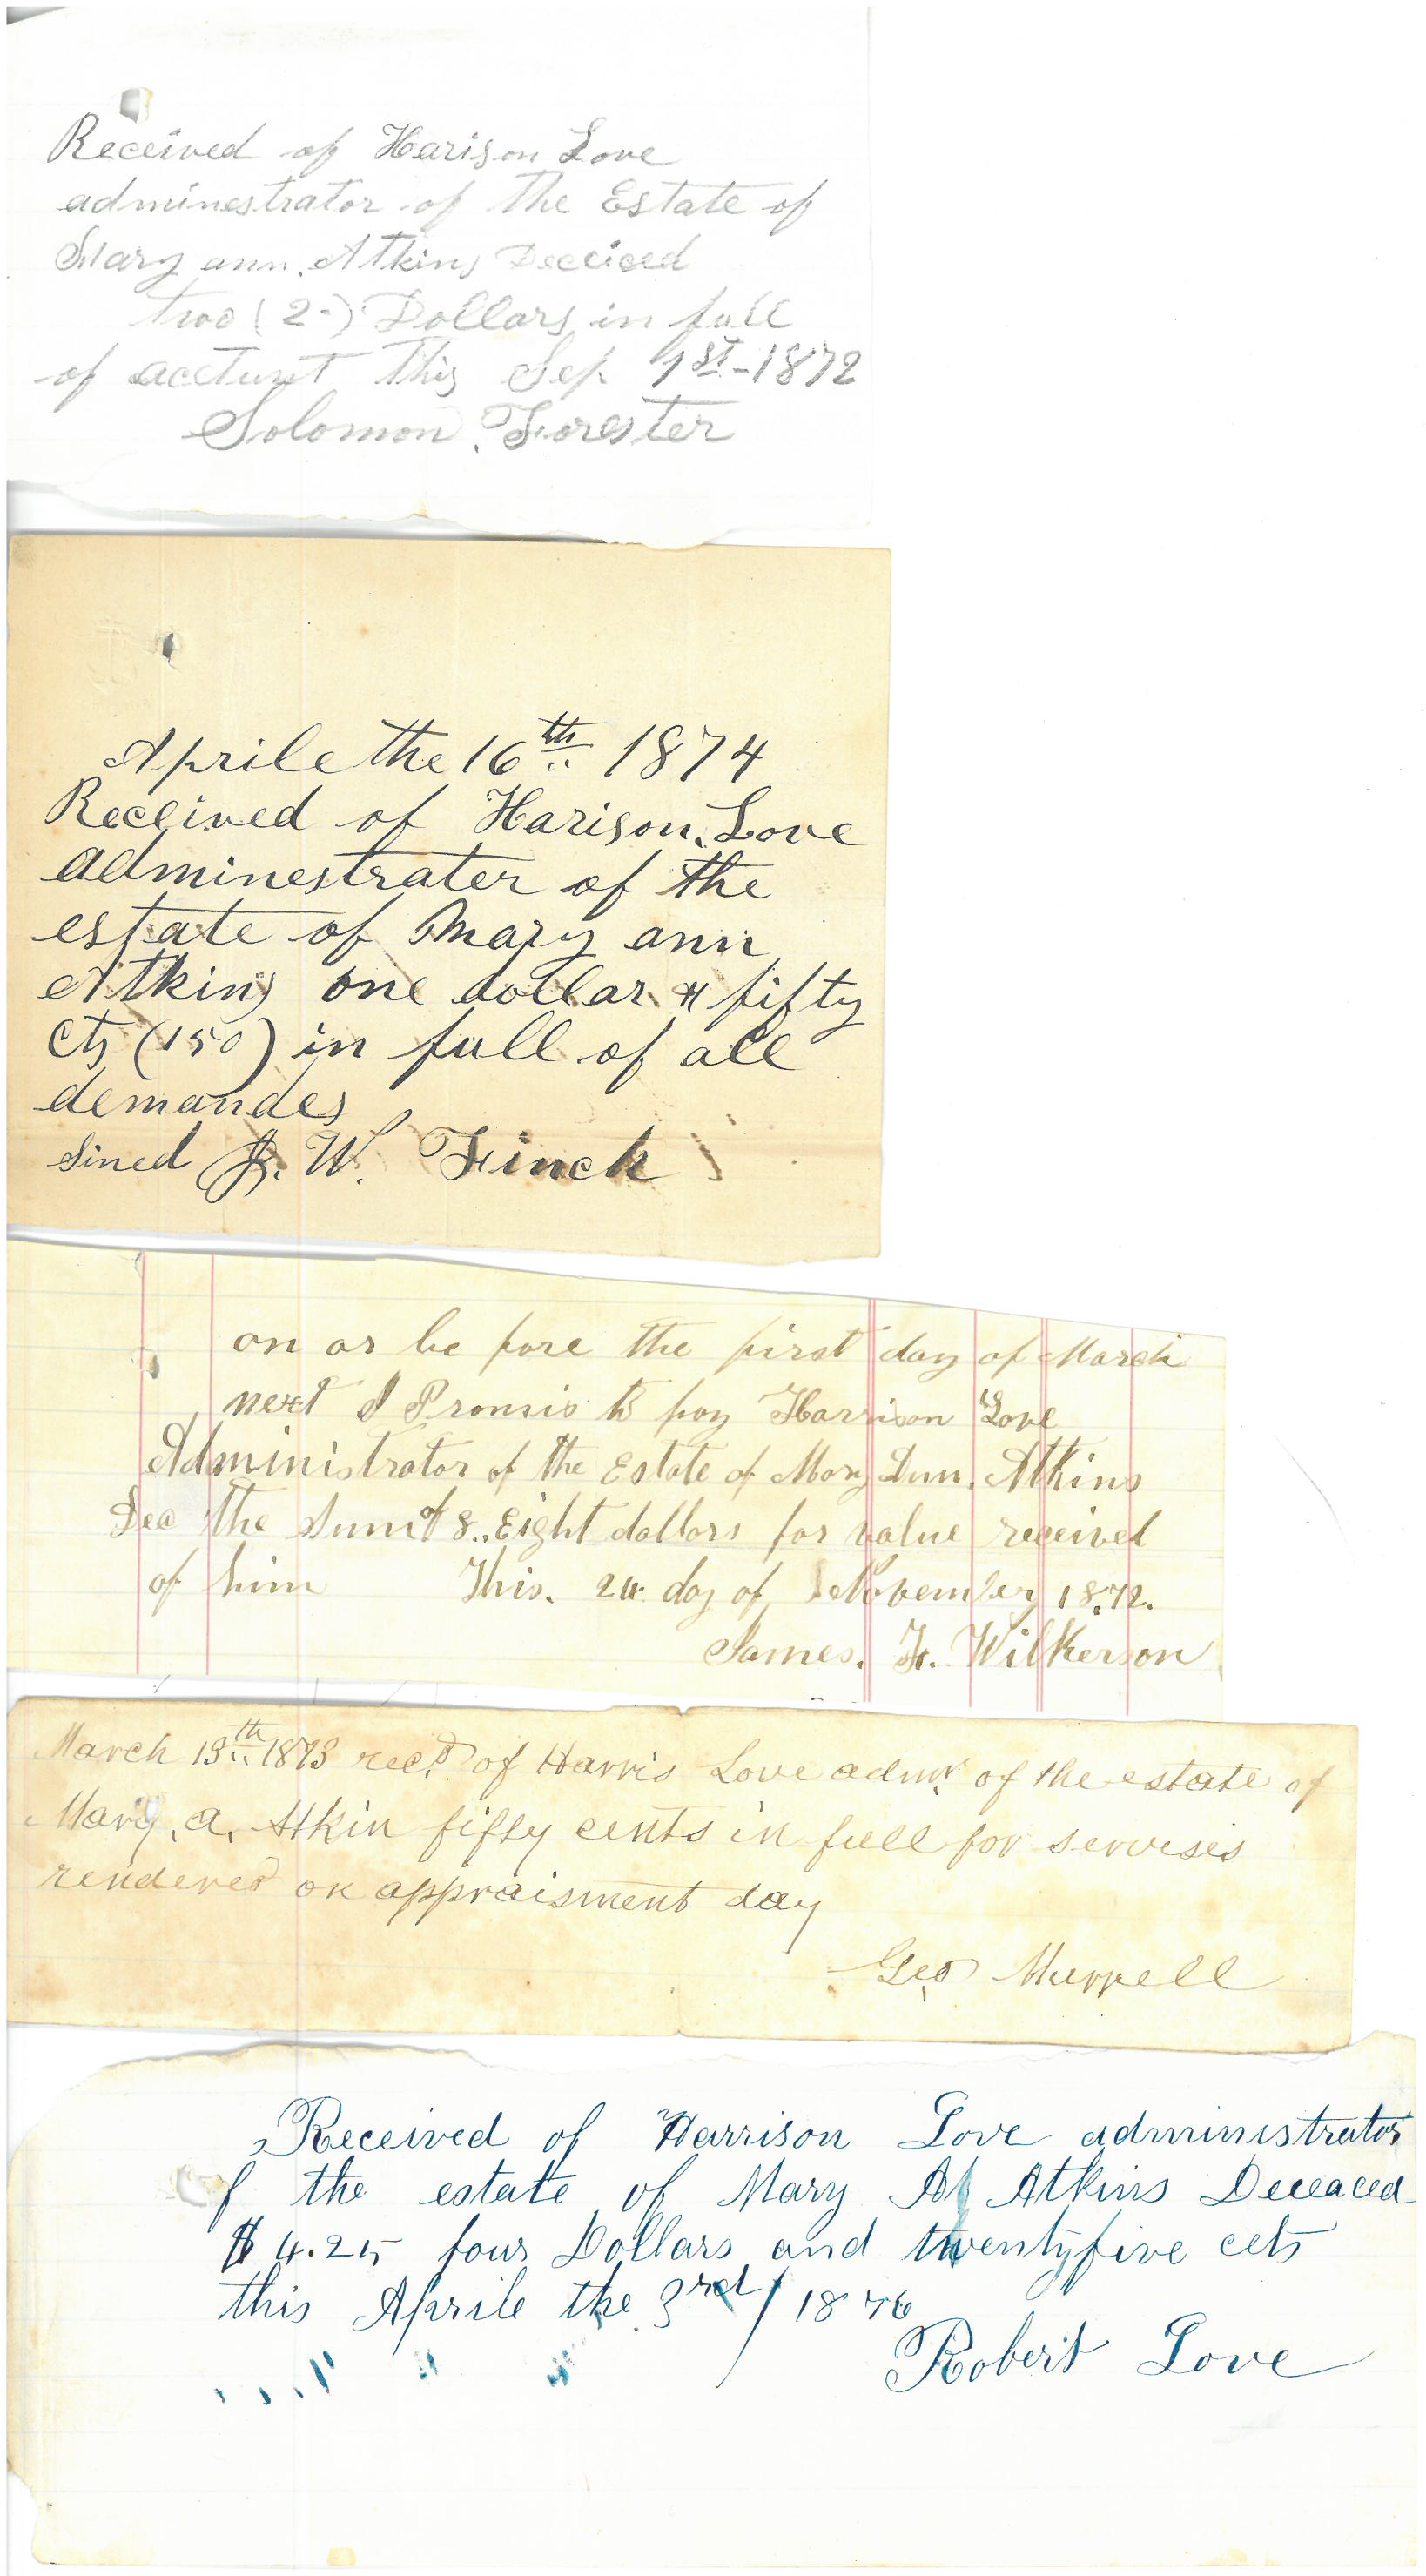 Received of Harison Love
adminestrator of the Estate of
Mary ann. Atkins Decciced
two (2-) Dollars in full
of acctunt this Sep 1st-1872
Solomon. Forester
Aprile the 16th 1874
Received of Harison. Love
adminestrater of the
estate of Mary ann
Atkins one dollar & fifty
cts (150) in full of all
demandes
sined J. W. Finck
on or be fore the first day of March
next I Promis to pay Harrison Love
Administrator of the Estate of Mary Ann. Atkins
Dec the Sum of 8.. Eight dollars for value received
of him This. 24 day of November 18.72.
James. F. Wilkerson
March 13th 1873 recd of Harris Love admr. of the estate of
Mary. a. Atkin fifty cents in full for servises
rendered on appraisment day
Geo Murrell
Received of Harrison Love administrator
f the estate of Mary A Atkins Deceaced
$4.25 four Dollars and twentyfive cets
this Aprile the 3rd / 1876
Robert Love